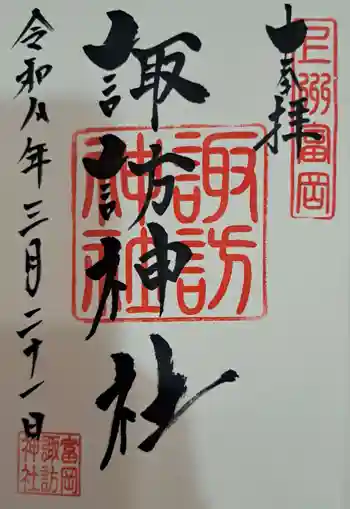 奉拝
上州富岡
諏訪神社
諏訪神社
令和八年三月二十一日
富岡
諏訪
神社